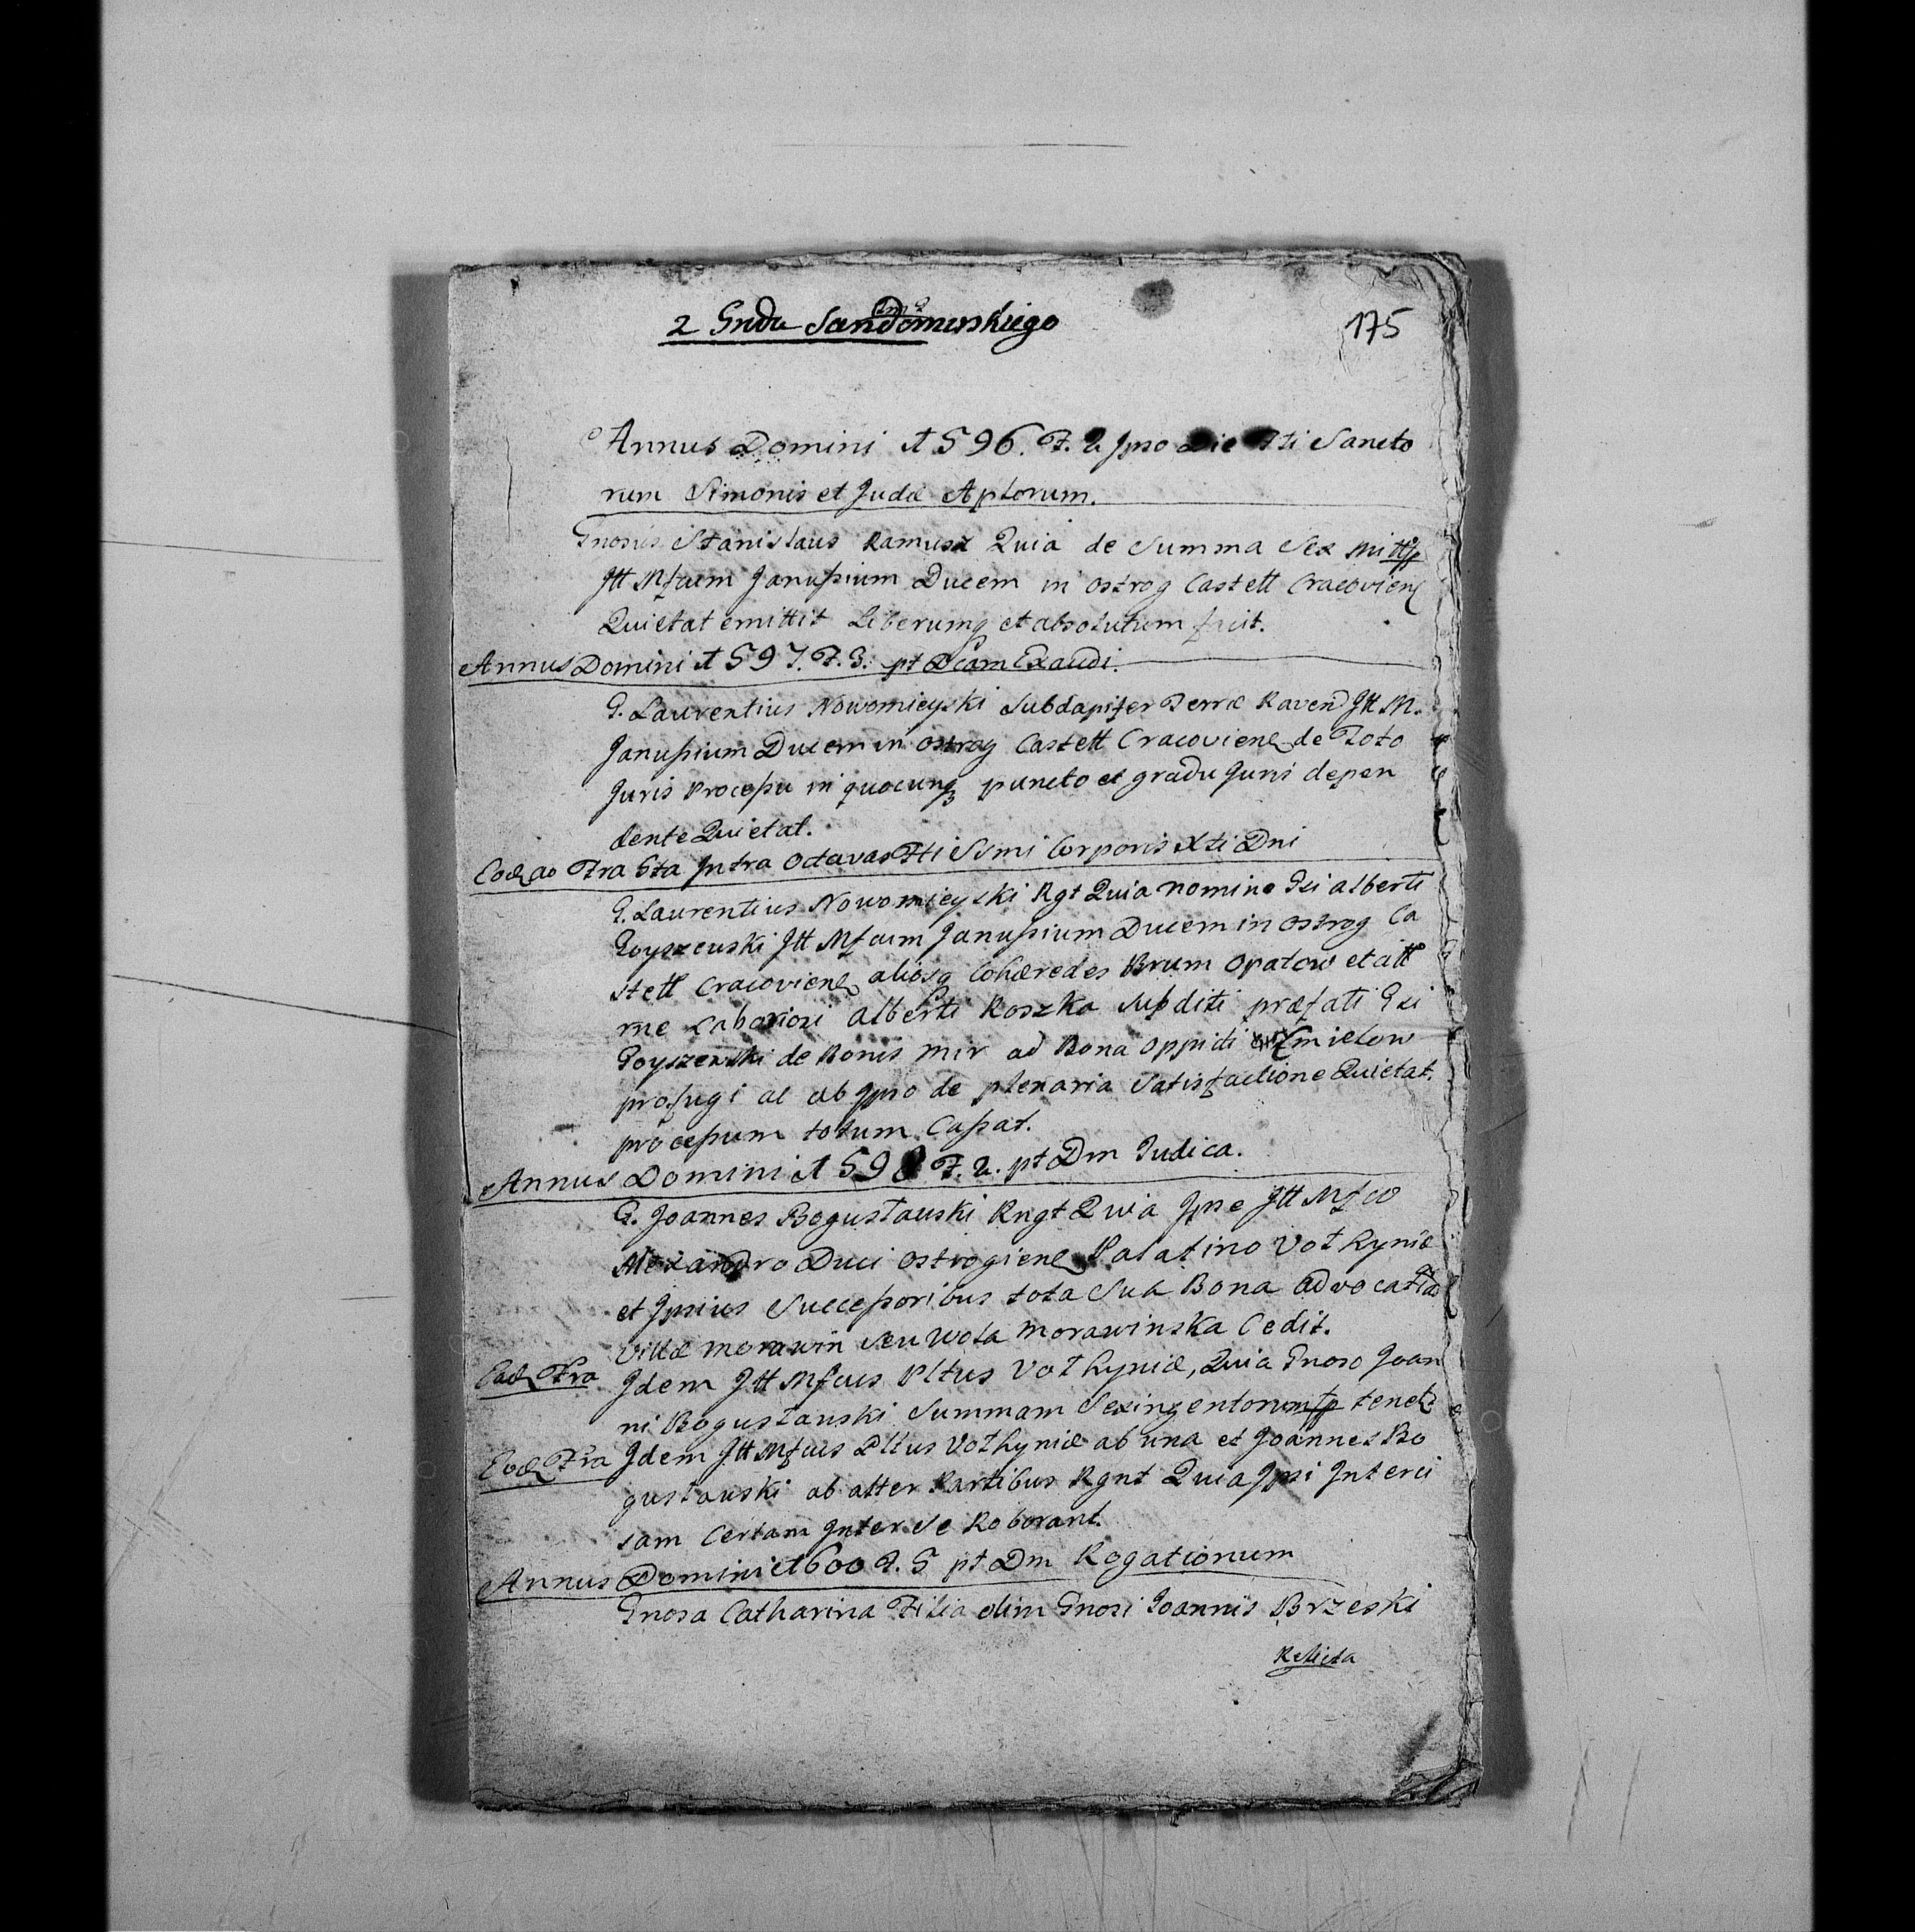 2 Grodu Sandomirskiego
175
Annus Domini 1596. F. 2 Ipso Die Fti Sancto
rum Simonis et Judæ Aptorum.
Gnosus Stanislaus Ramusz Quia de Summa Sex Mill
Jll Mfcum Janussium Ducem in Ostrog Castell Cracovien
Quietat emittit Liberumq et absolutum facit.
Annus Domini 1597. F. 3. pt Dcam Exaudi.
G. Laurentius Nowomieyski Subdapifer Terræ Raven Jll M.
Janussium Ducem in Ostrog Castell Cracovien de Toto
Juris Processu in quocunq puncto et gradu Juris depen
dente Quietat.
Eod ao Fra 6ta Intra Octavas Fti Ssmi Corporis Xti Dni
G. Laurentius Nowomieyski Rgt Quia nomine Gsi Alberti
Goyszewski Jll Mfcum Janussium Ducem in Ostrog Ca
stell Cracovien aliosq Cohæredes Brum Opatow et
me Laboriosi Alberti Koszka Subditi præfati Gsi
Goyszewski de Bonis Mir ad Bona Oppidi Cmielow
profugi ac ab Ipso de plenaria Satisfactione Quietat.
processum totum Cassat.
Annus Domini 1598 F. 2. pt Dm Judica.
G. Joannes Bogusławski Rngt Quia Ipse Jll Mfco
Alexandro Duci Ostrogien Palatino Volhyniæ
et Ipsius Successoribus tota Sua Bona Advocatiæ
Villæ Morawin seu Wola Morawinska Cedit.
Ead Fra Idem Jll Mfcus Pltus Volhyniæ, Quia Gnoso Joan
ni Bogusławski Summam Sexingentorum tenet
Eod Fra Idem Jll Mfcus Pltus Volhyniæ ab una et Joannes Bo
gusławski ab alter Partibus Rgnt Quia Ipsi Interci
sam Certam Inter se Roborant.
Annus Domini 1600 F. 5 pt Dm Rogationum
Gnosa Catharina Filia olim Gnosi Joannis Brzeski
Relicta